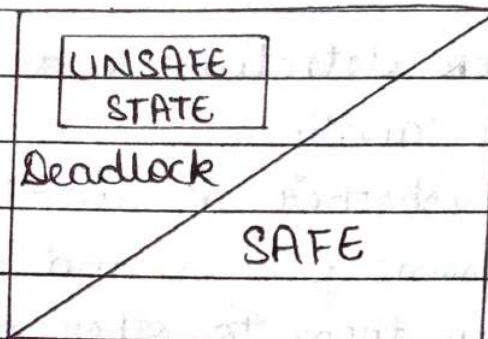 UNSAFE
STATE
Deadlock
SAFE